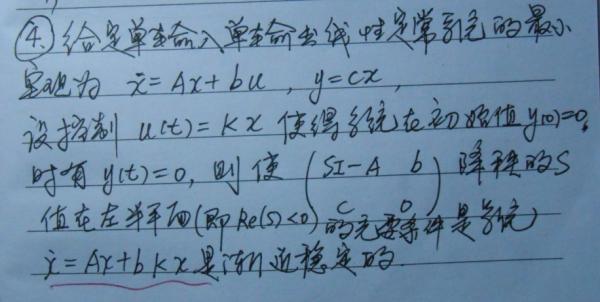 ④. 给定单输入单输出线性定常系统的最小
实现为 ẋ=Ax+bu, y=cx,
设控制 u(t)=Kx 使得系统在初始值y(0)=0,
时有 y(t)=0, 则使 (SI-A b 降秩的S
值在左半平面(即Re(s)<0) c 0) 的充要条件是系统
ẋ=Ax+bKx是渐近稳定的.